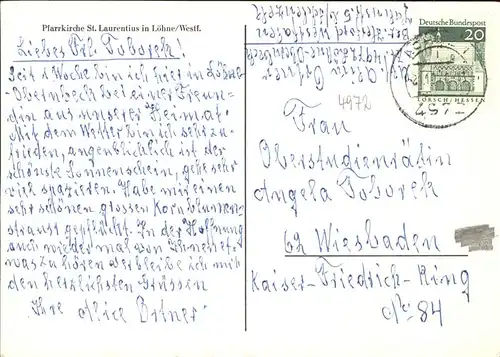 Pfarrkirche St. Laurentius in Löhne/Westf.
Liebes Frl. Toborek!
Seit 1 Woche bin ich hier in Löhne
-Obernbeck bei einer Freun-
din aus unserer Heimat.
Mit dem Wetter bin ich sehr zu-
frieden, augenblicklich ist der
schönste Sonnenschein, gehe sehr
viel spazieren. Habe mir einen
sehr schönen grossen Kornblumen-
strauss gepflückt. In der Hoffnung
auch wieder mal von Ihnen et-
was zu hören verbleibe ich mit
den herzlichsten Grüssen
Ihre Alice Ortner
Deutsche Bundespost
20
LORSCH/HESSEN
Alice Ortner
4972
Frau
Oberstudienrätin
Angela Toborek
62 Wiesbaden
Kaiser-Friedrich-Ring
No 84